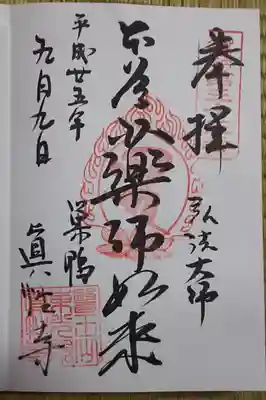 奉拝
弘法大師
本尊藥師如来
巣鴨
眞性寺
平成廿五年
九月九日